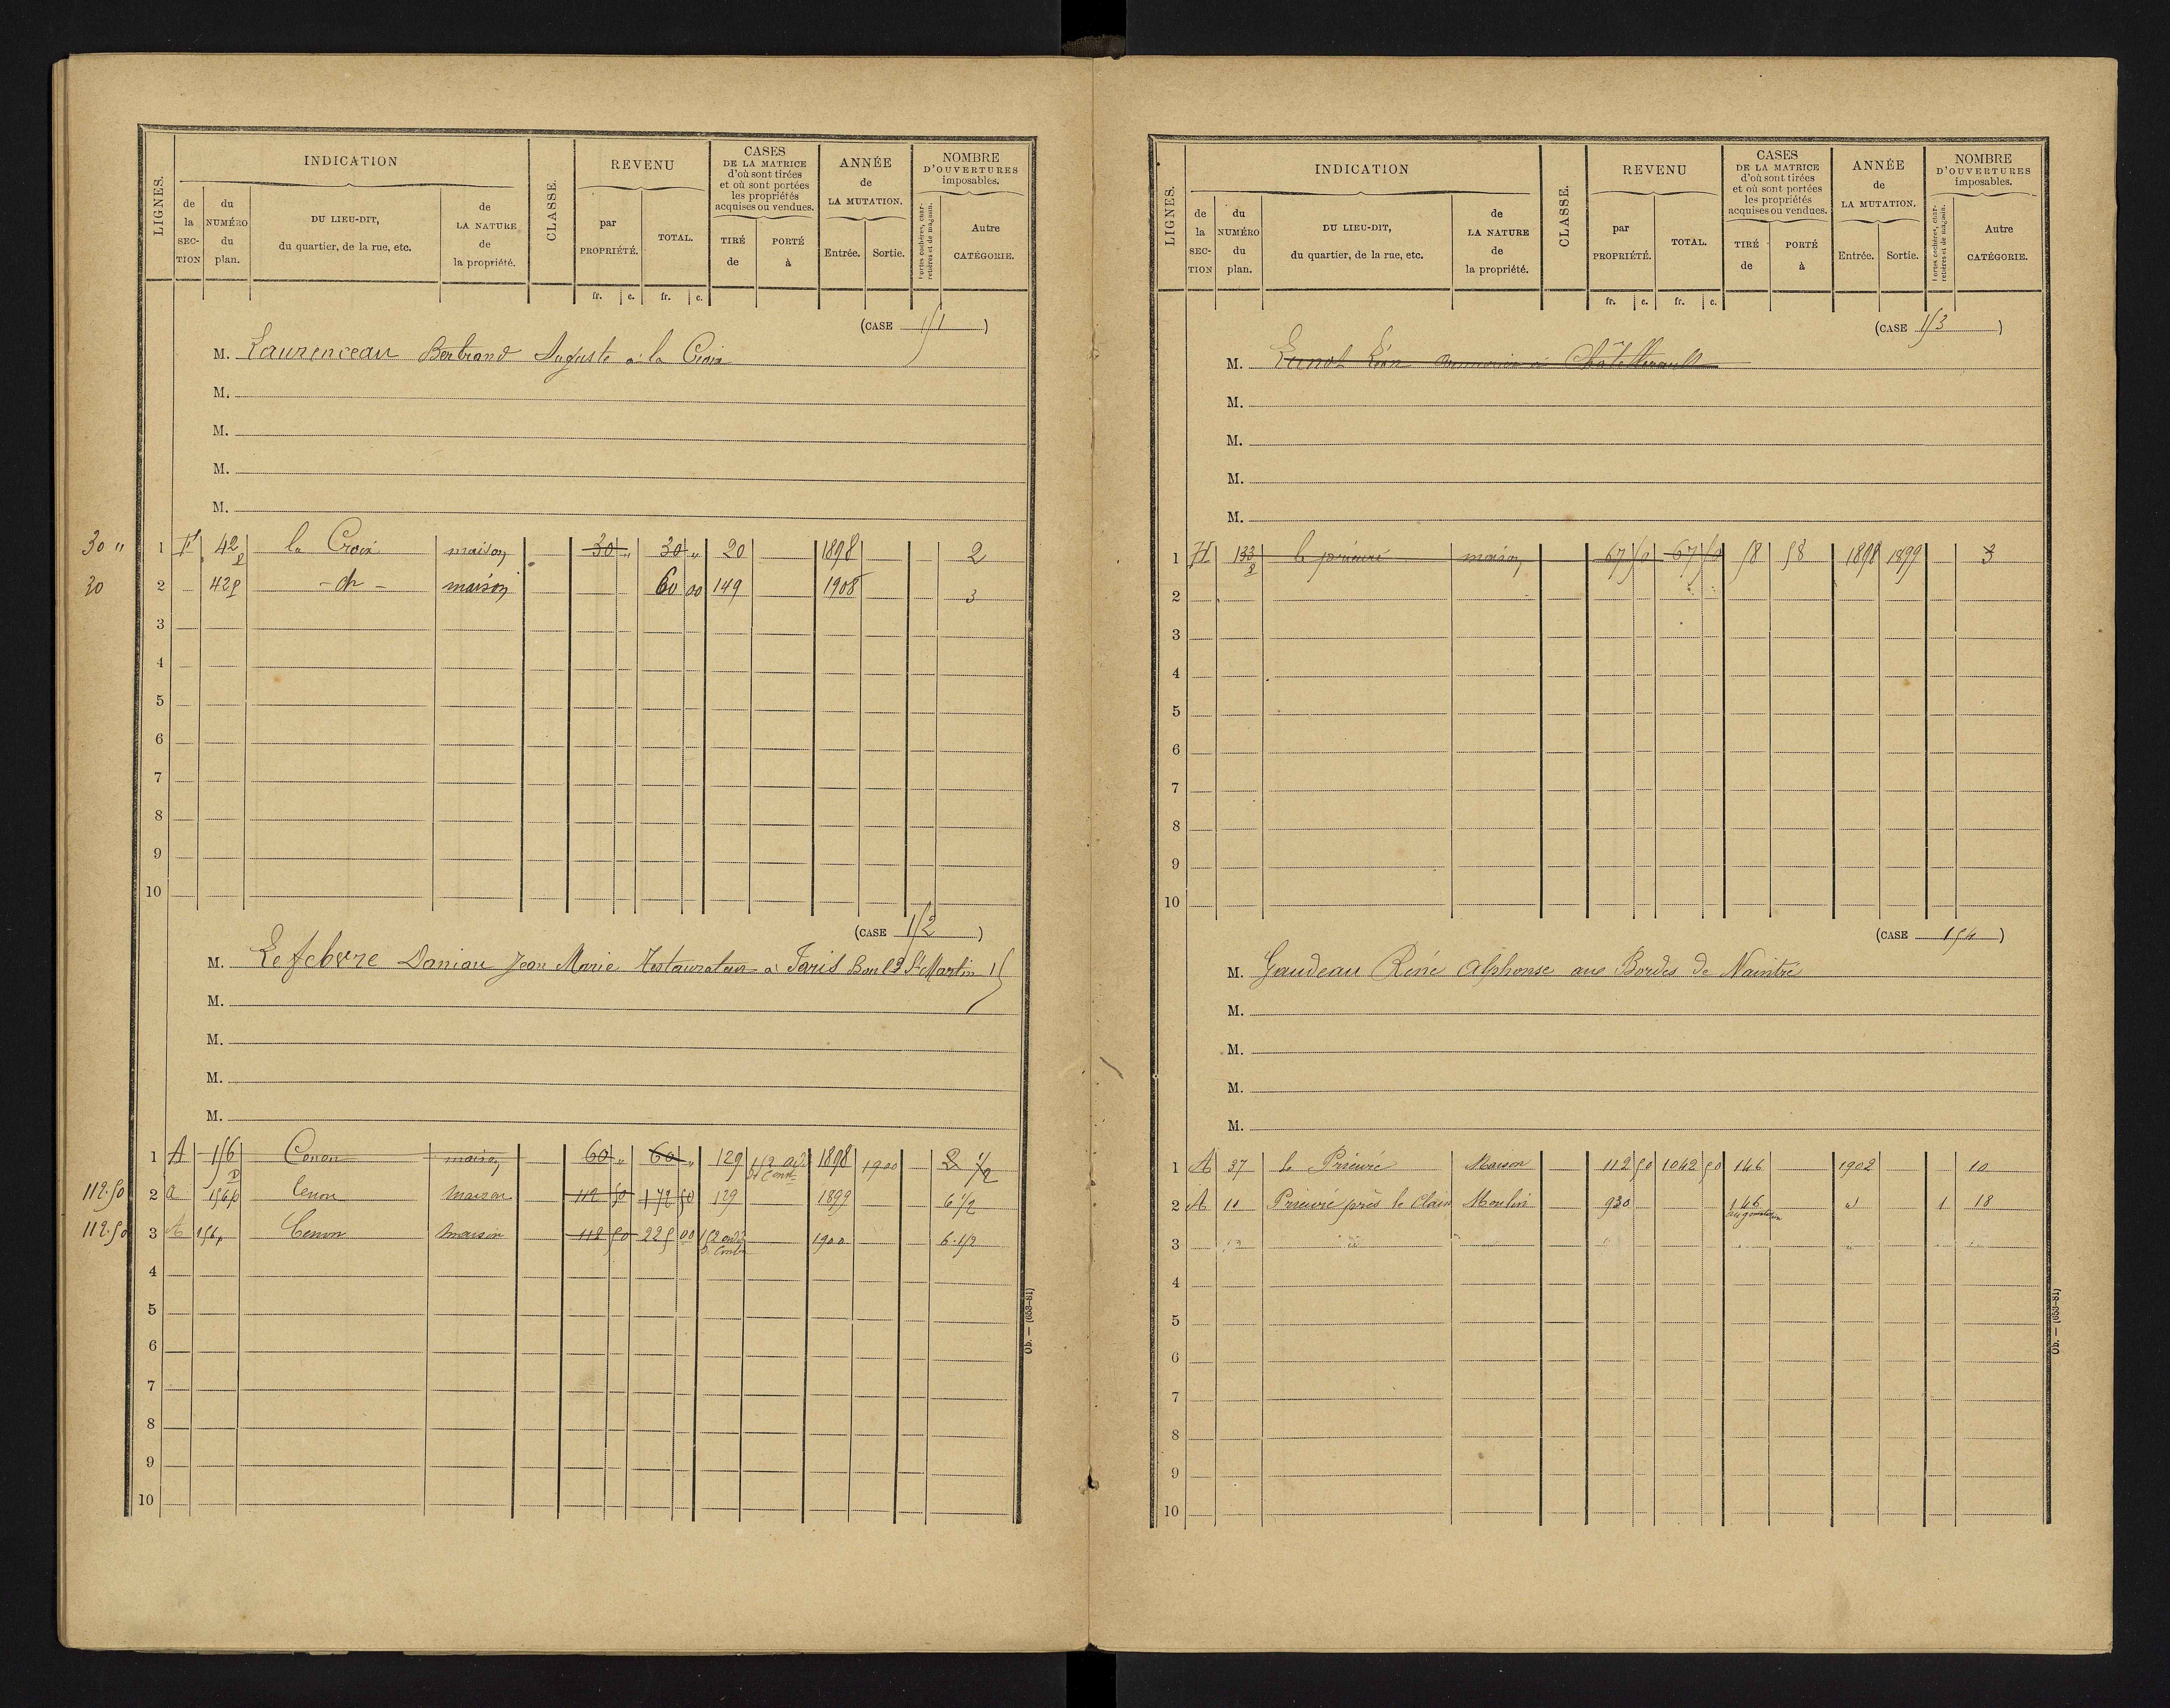 LIGNES.
INDICATION
de la SECTION
du NUMÉRO du plan.
DU LIEU-DIT, du quartier, de la rue, etc.
de LA NATURE de la propriété.
CLASSE.
REVENU
par PROPRIÉTÉ.
TOTAL.
CASES DE LA MATRICE d'où sont tirées et où sont portées les propriétés acquises ou vendues.
TIRÉ de
PORTÉ à
ANNÉE de LA MUTATION.
Entrée.
Sortie.
NOMBRE D'OUVERTURES imposables.
Portes cochères, charretières et de magasin.
Autre CATÉGORIE.
fr. c. fr. c.
(CASE 151)
M. Laurenceau Bertrand Auguste à la Croix
M.
M.
M.
M.
30 " 1 F 42 p la Croix maison 30 " 30 " 20 1898 2
30 2 42p - do - maison 60 00 149 1908 3
3
4
5
6
7
8
9
10
(CASE 152)
M. Lefebvre Daniau Jean Marie Restaurateur à Paris Boul.d St Martin 15
M.
M.
M.
M.
1 A 156 p Cenon maison 60 " 60 " 129 1898 1900 2 1/2
112.50 2 a 156p Cenon maison 112 50 172 50 129 1899 6 1/2
112.50 3 A 156p Cenon maison 112 50 225 00 152 1900 6.1/2
4
5
6
7
8
9
10
Ob. — (653-81)
LIGNES.
INDICATION
de la SECTION
du NUMÉRO du plan.
DU LIEU-DIT, du quartier, de la rue, etc.
de LA NATURE de la propriété.
CLASSE.
REVENU
par PROPRIÉTÉ.
TOTAL.
CASES DE LA MATRICE d'où sont tirées et où sont portées les propriétés acquises ou vendues.
TIRÉ de
PORTÉ à
ANNÉE de LA MUTATION.
Entrée.
Sortie.
NOMBRE D'OUVERTURES imposables.
Portes cochères, charretières et de magasin.
Autre CATÉGORIE.
fr. c. fr. c.
(CASE 153)
M. Léon à Châtellerault
M.
M.
M.
M.
1 H 133 p le prieuré maison 67 50 67 50 58 58 1898 1899 3
2
3
4
5
6
7
8
9
10
(CASE 154)
M. Gaudeau René Alphonse aux Bordes de Naintré
M.
M.
M.
M.
1 A 37 le Prieuré Maison 112 50 1042 50 146 1902 10
2 A 10 Prieuré près le Clain Moulin 930 146 augmentation d 1 18
3
4
5
6
7
8
9
10
Ob. — (653-81)